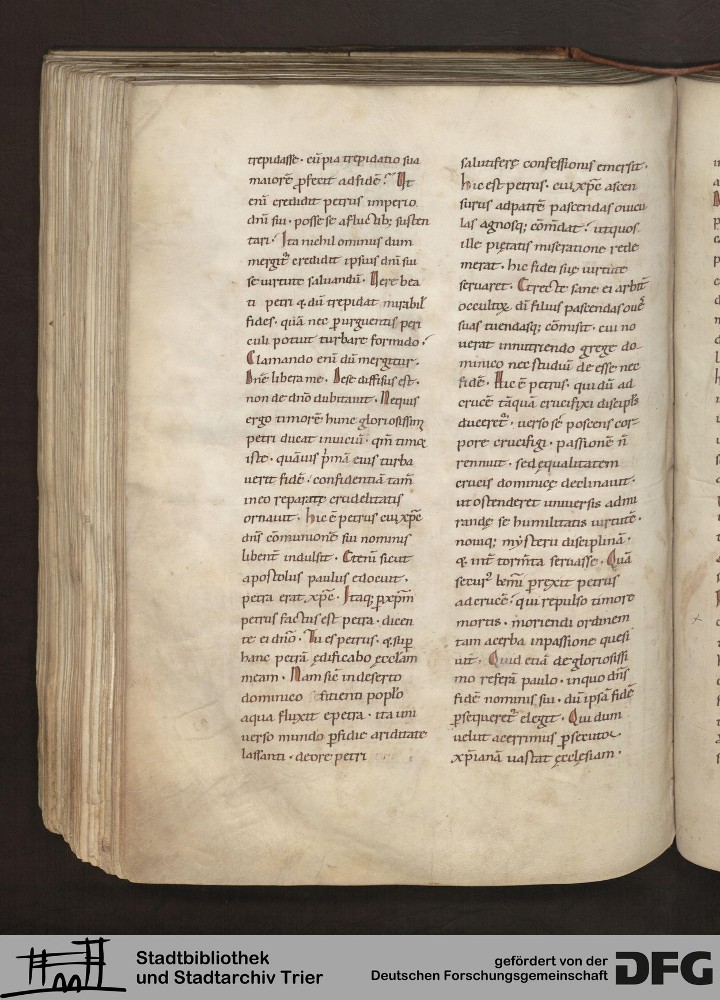 trepidasse · cū pia trepidatio sua
maiorē ꝓfecit ad fidē? Ut
eni credidit petrus imperio
dnī sui · posse se a fluctib; susten
tari · Ita nichil ominus dum
mergit᷒ credidit ipsius dnī sui
se uirtute saluandū · Uere bea
ti petri q. dū trepidat mirabil̄
fides · quā nec ꝑurguentis peri
culi potuit turbare formido ·
Clamando enī dū mergitur ·
Dn̄e libera me · De se diffisus est ·
non de dn̄o dubitauit · Nequis
ergo timorē hunc gloriosissim̄
petri ducat inuiciū · qm̄ timor
iste · quāuis p̍mā eius turba
uerit fidē · confidentiā tam̄
in eo reparate crudelitatis
ornauit · hic ē petrus cui xp̄e
dn̄s cōmunionē sui nominis
libent̄ indulsit · Etenī sicut
apostolus paulus edocuit ·
petra erat xp̄c · Itaq; ꝑ xp̄m̄
petrus factus est petra · dicen
te ei dn̄o · Tu es petrus · q. sup̄
hanc petrā ędificabo ęccl̄am
meam · Nam sic̄ in deserto
dominico sitienti popl̄o
aqua fluxit e petra · ita uni
uerso mundo ꝑfidię ariditate
lassanti · de ore petri
salutiferę confessionis emersit ·
hic est petrus · cui xp̄c ascen
surus ad patrē pascendas ouicu
las agnosq; cōm̄dat? ut quos
ille pietatis miseratione rede
merat · hic fidei suę uirtute
seruaret · Et recte sane ei arbit̄
occultoꝝ dī filius pascendas oues
suas tuendasq; cōmisit · cui no
uerat in nutriendo grege do-
minico nec studiū deesse nec
fidē · Hic ē petrus · qui dū ad
crucē tāquā crucifixi discipls
duceret᷒ · uerso se poscens cor-
pore crucifigi · passionē n̄
rennuit · sed equalitatem
crucis dominicę declinauit ·
ut ostenderet uniuersis admi
randę se humilitatis uirtutē ·
nouiq; mysterii disciplinā ·
q. int̄ torm̄ta seruasse · Quā
securꝰ bonī prexit petrus
ad crucē · qui repulso timore
mortis · moriendi ordinem
tam acerba in passione quesi
uit · Quid etiā de gloriosissi
mo referā paulo · in quo dn̄s
fidē nominis sui · dū ipsā fidē
ꝑsequeret᷒ elegit · Qui dum
uelut acerrimus ꝑsecutor
xp̄ianā uastat ęcclesiam ·
Stadtbibliothek
und Stadtarchiv Trier
gefördert von der
Deutschen Forschungsgemeinschaft
DFG